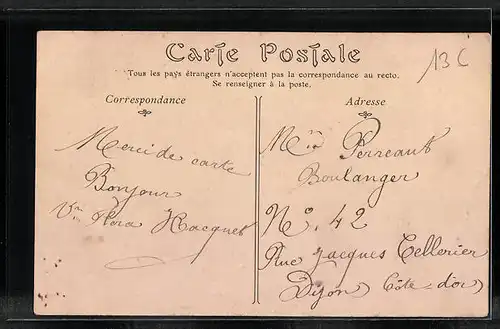 Carte Postale
13c
Tous les pays étrangers n'acceptent pas la correspondance au recto.
Se renseigner à la poste.
Correspondance
Adresse
Merci de carte
Bonjour
Flora Hacquet
Perreaut
Boulanger
N° 42
Rue Jacques Cellerier
Dijon (Côte-d'or)